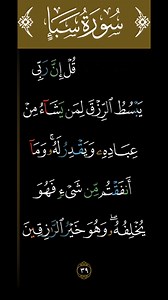 سُورَةُ سَبَإٍ
قُلْ إِنَّ رَبِّي
يَبْسُطُ الرِّزْقَ لِمَن يَشَاءُ مِنْ
عِبَادِهِ وَيَقْدِرُ لَهُ ۚ وَمَا
أَنفَقْتُم مِّن شَيْءٍ فَهُوَ
يُخْلِفُهُ ۖ وَهُوَ خَيْرُ الرَّازِقِينَ
٣٩